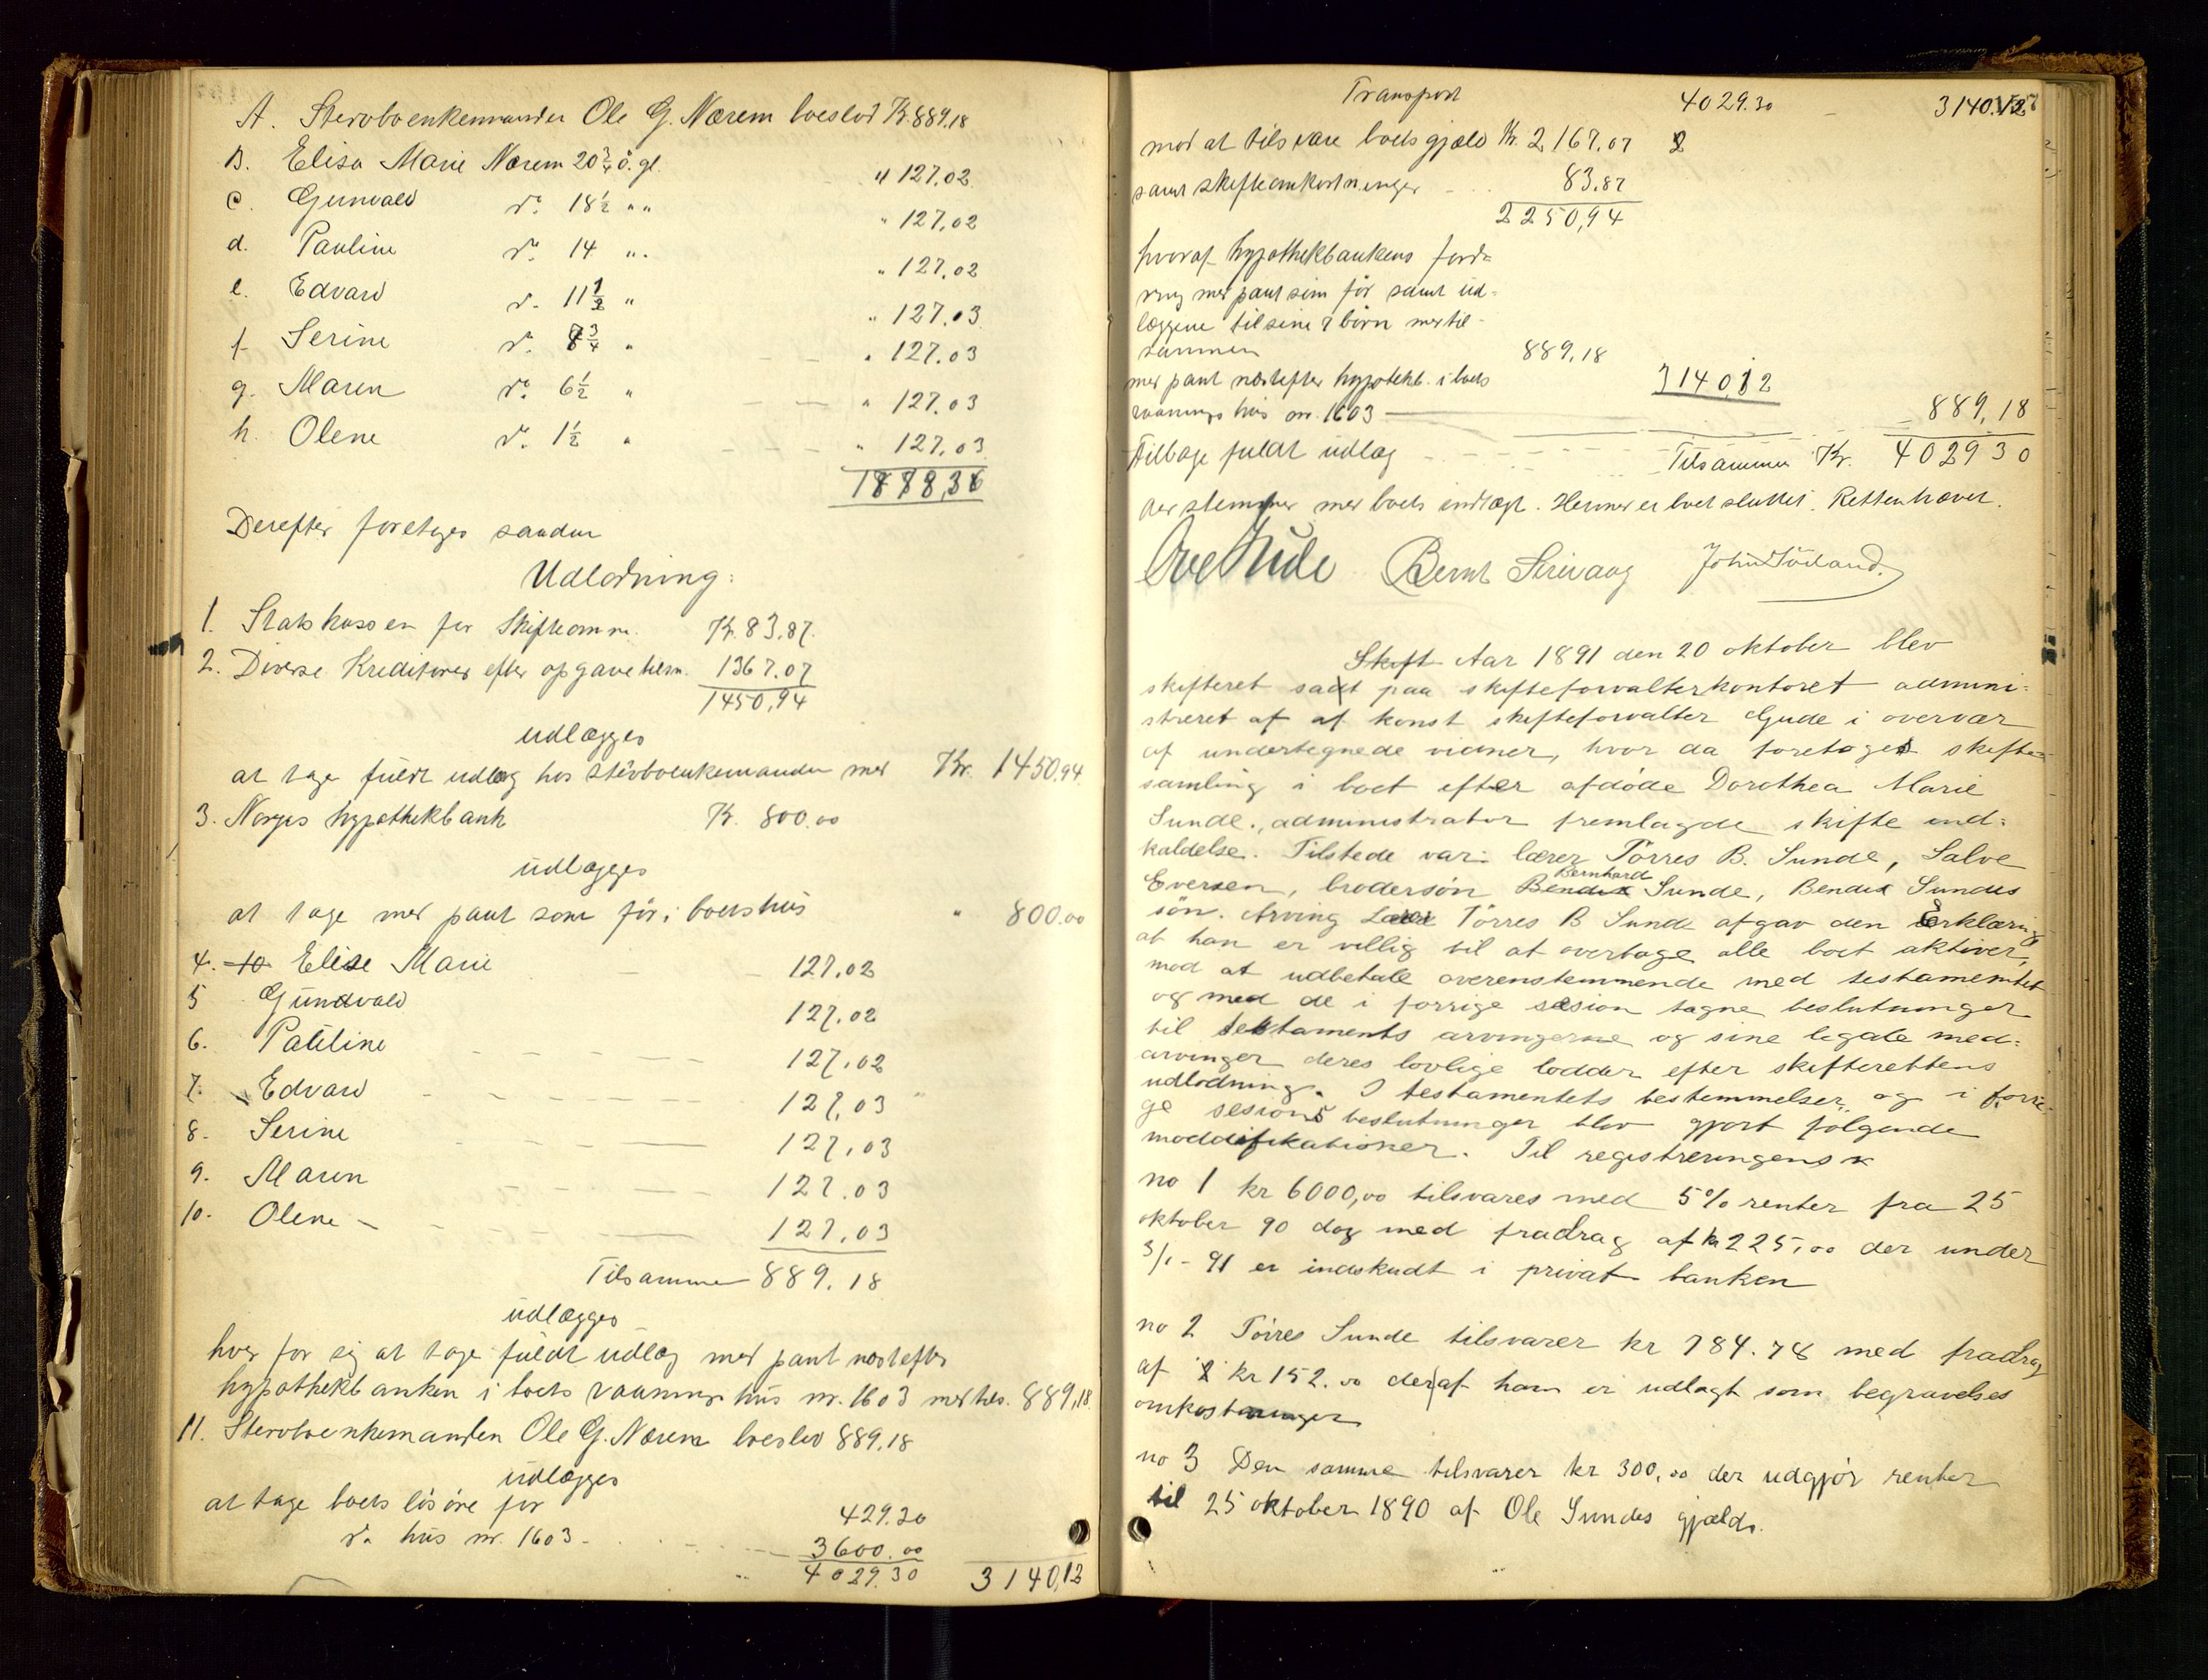 A. Stervboenkemanden Ole G. Nærem boeslod Kr. 889,18
B. Elisa Marie Nærem 20 3/4 å. gl. " 127,02
C. Gunvald do. 18 1/2 " " " 127,02
d. Pauline do. 14 " " 127,02
e. Edvard do. 11 1/2 " " 127,03
f. Serine do. 8 3/4 " " 127,03
g. Maren do. 6 1/2 " " 127,03
h. Olene do. 1 1/2 " " 127,03
1778,36
Derefter foretoges saadan
Udlodning:
1. Statskassen for Skifteomk. Kr. 83,87.
2. Diverse Kreditorer efter opgave tilsm. 1367.07
1450,94
udlægges
at tage fuldt udlæg hos stervboenkemanden med Kr. 1450,94
3. Norges hypothekbank Kr. 800.00
udlægges
at tage med pant som før i boets hus " 800.00
4. Elise Marie 127,02
5 Gundvald 127,02
6. Pauline 127,02
7. Edvard 127,03
8. Serine 127,03
9. Maren 127.03
10. Olene 127,03
Tilsammen 889.18
udlægges
hver for sig at tage fuldt udlæg med pant næstefter
hypothekbanken i boets vaaningshus nr. 1603 med tils. 889,18
11. Stervboenkemanden Ole G. Nærem boeslod 889,18
udlægges
at tage boets løsøre for 429.30
do. hus nr. 1603 3600.00
4029.30 3140,12
Transport 4029.30 3140.12
mod at tilsvare boets gjæld Kr. 2167,07
samt skifteomkostninger 83.87
2250,94
hvoraf hypothekbankens ford=
ring med pant som før samt ud=
læggene til sine 7 børn med til-
sammen 889,18
med pant næstefter hypothekb. i boets 3140,12
vaaningshus nr. 1603 889,18
Tilbage fuldt udlæg Tilsammen Kr. 4029 30
der stemmer med boets indtægt. Hermed er boet sluttet. Retten hævet.
Ove Gude Bernt Sirevaag John Söiland.
Skift Aar 1891 den 20 oktober blev
skifteret sadt paa skifteforvalterkontoret admini=
streret af af konst skifteforvalter Gude i overvær
af undertegnede vidner, hvor da foretoges skifte=
samling i boet efter afdøde Dorothea Marie
Sunde., administrator fremlagde skifte ind=
kaldelse. Tilstede var: lærer Törres B. Sunde, Salve
Eversen, brodersøn Bendix Bernhard Sunde, Bendix Sundes
søn. Arving Törres B Sunde afgav den Erklæring
at han er villig til at overtage alle boet aktiver,
mod at udbetale overenstemmende med testamentet
og med de i forrige sesion tagne beslutninger
til testaments arvingerne og sine legale med=
arvinger deres lovlige lodder efter skifterettens
udlodning. I testamentets bestemmelser og i forri=
ge sesions beslutninger blev gjort følgende
moddifikationer. Til registreringens
no 1 kr 6000,00 tilsvares med 5% renter fra 25
oktober 90 dog med fradrag af kr 225,00 der under
3/1 - 91 er indskudt i privat banken
no 2 Törres Sunde tilsvarer kr 784.78 med fradrag
af kr 152.00 der af ham er udlagt som begravelses
omkostninger
no 3 Den samme tilsvarer kr 300,00 der udgjør renter
til 25 oktober 1890 af Ole Sundes gjæld.